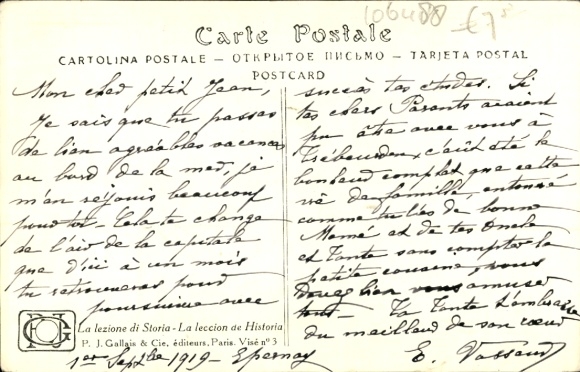 106488 €7
Carte Postale
CARTOLINA POSTALE — ОТКРЫТОЕ ПИСЬМО — TARJETA POSTAL
POSTCARD
Mon cher petit Jean,
Je sais que tu passes
de bien agréables vacances
au bord de la mer, je
m'en réjouis beaucoup
pour toi - Cela te change
de l'air de la capitale
que d'ici à un mois
tu retrouveras pour
poursuivre avec
succès tes études. Si
tes chers Parents avaient
pu être avec vous à
Trébeurden, c'aût été le
bonheur complet que cette
vie de famille, entouré
comme tu l'es de bonne
Mémé et de tes Oncle
et Tante sans compter la
petite cousine, vous
devez bien vous amuser
tout - Ta Tante t'embrasse
du meilleur de son cœur
E. Vassaud
La lezione di Storia - La leccion de Historia
P. J. Gallais & Cie, éditeurs, Paris. Visé n° 3
1er Septbre 1919 - Epernay